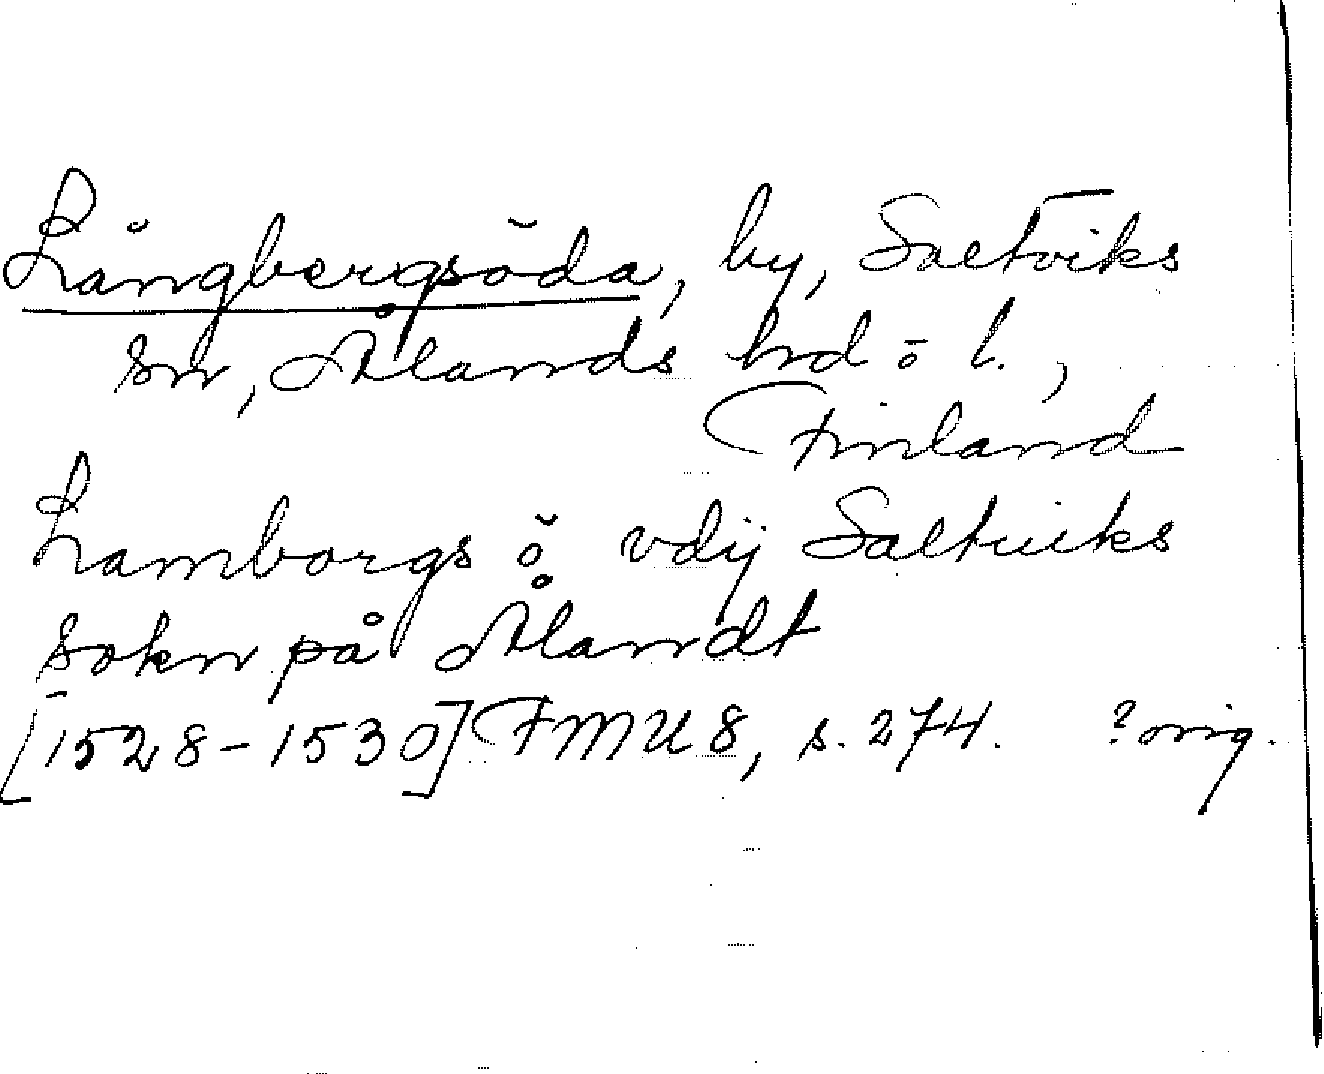 Långbergsöda, by, Saltviks
sn, Ålands hrd o l.,
Finland
Lamborgs ö vdij Saltuiks
sokn på Ålandt
[1528-1530] FMU 8, s. 274. ? orig.